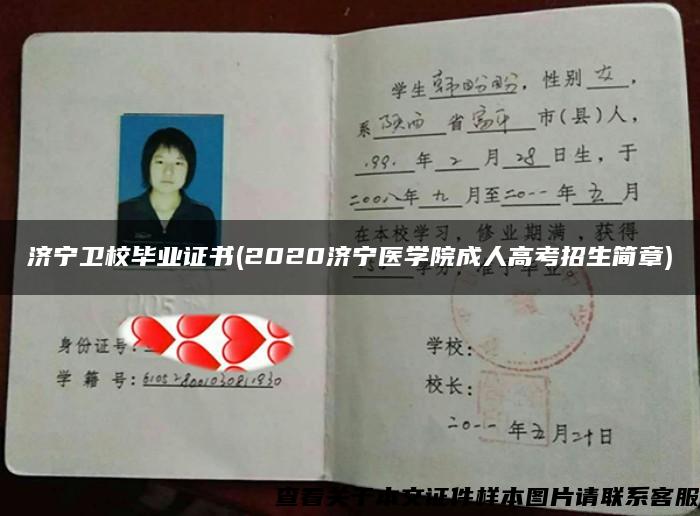 学生韩盼盼，性别女，
系陕西省富平市(县)人，
199.年2月28日生，于
二00八年九月至二0一一年五月
在本校学习，修业期满，获得
济宁卫校毕业证书(2020济宁医学院成人高考招生简章)
身份证号：
学籍号：
学校：
校长：
二0一一年五月二十日
查看关于本文证件样本图片请联系客服